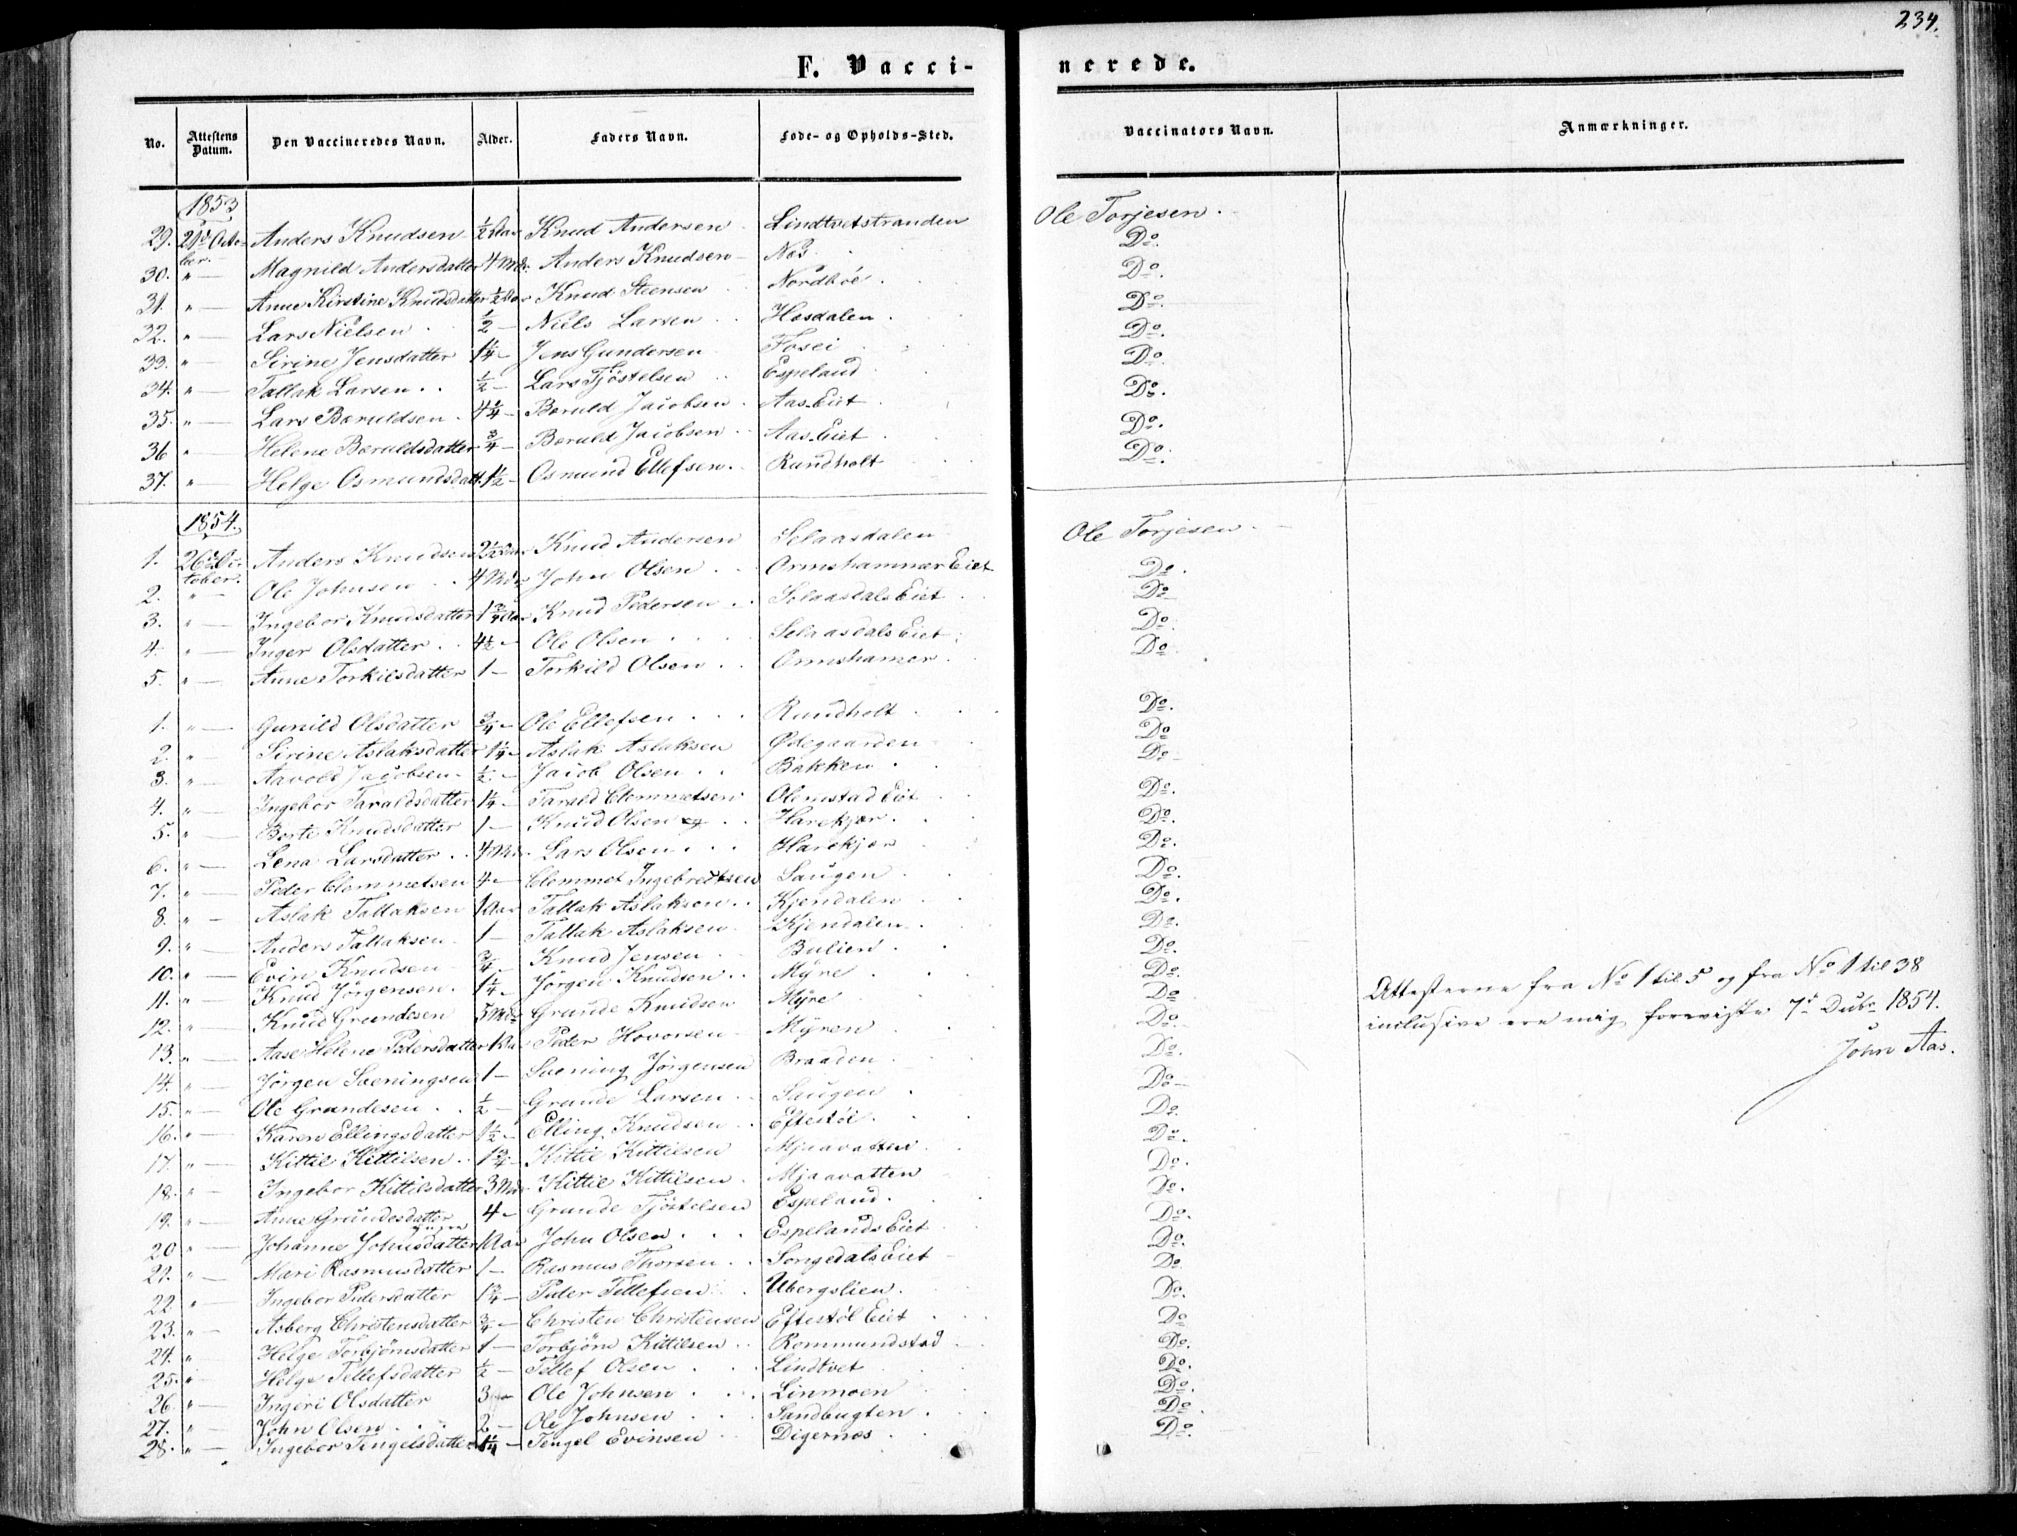 234.
F. Vacci-
nerede.
No. Attestens Datum. Den Vaccineredes Navn. Alder. Faders Navn. Føde- og Opholds-Sted. Vaccinators Navn. Anmærkninger.
1853
29. 29de October. Anders Knudsen ½ Aar Knud Andersen Lindtvetstranden Ole Torjesen.
30. " — Magnild Andersdatter 4 Mdr. Anders Knudsen Næs Do.
31. " — Anne Kirstine Knudsdatter ½ Aar Knud Steensen Nordbøe Do.
32. " — Lars Nielsen ½ — Niels Larsen Hasdalen Do.
33. " — Sirine Jensdatter 1¼ — Jens Gundersen Fosei Do.
34. " — Tallak Larsen ½ — Lars Tjøstelsen Espeland Do.
35. " — Lars Baruldsen 4¼ — Baruld Jacobsen Aas Eiet Do.
36. " — Helene Baruldsdatter ¾ — Baruld Jacobsen Aas Eiet Do.
37. " — Helge Osmundsdatt. 1½ — Osmund Ellefsen Rundholt Do.
1854.
1. 26de October. Anders Knudsen 2½ Aar Knud Andersen Solaasdalen Ole Torjesen
2. " — Ole Johnsen 4 Mdr John Olsen Ormshammar Eiet Do.
3. " — Ingebor Knudsdatter 1¾ Aar Knud Pedersen Solaasdals Eiet Do.
4. " — Inger Olsdatter 4½ — Ole Olsen Solaasdals Eiet Do.
5. " — Anne Torkilsdatter 1 — Torkild Olsen Ormshamer Do.
1. " — Gunild Olsdatter ¾ — Ole Ellefsen Rundholt Do.
2. " — Sirine Aslaksdatter 1¼ — Aslak Aslaksen Ødegaarden Do.
3. " — Aavold Jacobsen ½ — Jacob Olsen Bakken Do.
4. " — Ingebor Taraldsdatter 1¼ — Tarald Clemmetsen Olemstad Eiet Do.
5. " — Berte Knudsdatter 1 — Knud Olsen Harekjær Do.
6. " — Lena Larsdatter 4 Mdr. Lars Olsen Harekjær Do.
7. " — Peder Clemmetsen 4 — Clemmet Ingebretsen Saugen Do.
8. " — Aslak Tallaksen 1 Aar Tallak Aslaksen Kjendalen Do.
9. " — Anders Tallaksen 1 — Tallak Aslaksen Kjendalen Do.
10. " — Evin Knudsen ¾ — Knud Jensen Bulien Do.
11. " — Knud Jørgensen 1¼ — Jørgen Knudsen Myre Do.
12. " — Knud Grundesen 5 Mdr Grunde Knudsen Myre Do.
13. " — Aase Helene Pedersdatter 1 Aar Peder Hovorsen Myren Do.
14. " — Jørgen Sveningsen 1 — Svening Jørgensen Braaden Do.
15. " — Ole Grundesen ½ — Grunde Larsen Saugen Do.
16. " — Karen Ellingsdatter 1½ — Elling Knudsen Eftestøl Do.
17. " — Kittil Kittilsen 1¾ — Kittil Kittilsen Mjaavatten Do.
18. " — Ingebor Kittilsdatter 3 Mdr. Kittil Kittilsen Mjaavatten Do.
19. " — Anne Grundesdatter 4 — Grunde Tjøstelsen Espeland Do.
20. " — Johanne Johnsdatter 1 Aar John Olsen Espelands Eiet Do.
21. " — Mari Rasmusdatter 1 — Rasmus Thorsen Songedals Eiet Do.
22. " — Ingebor Pedersdatter 1¾ — Peder Tellefsen Ubergslien Do.
23. " — Asberg Christensdatter ¾ — Christen Christensen Eftestøl Eiet Do.
24. " Helge Torbjørnsdatter 1 — Torbjørn Kittilsen Rommundstad Do.
25. " Helge Tellefsdatter ½ — Tellef Olsen Lindtvet Do.
26. " — Ingeri Olsdatter 3 — Ole Johnsen Linmoen Do.
27. " — John Olsen 2 — Ole Johnsen Sandbugten Do.
28. " — Ingebor Tengelsdatter 1¼ — Tengel Evinsen Digernes Do.
Attesterne fra No 1 til 5 og fra No 1 til 38
inclusive ere mig foreviste 7de Decbr. 1854.
John Aas.